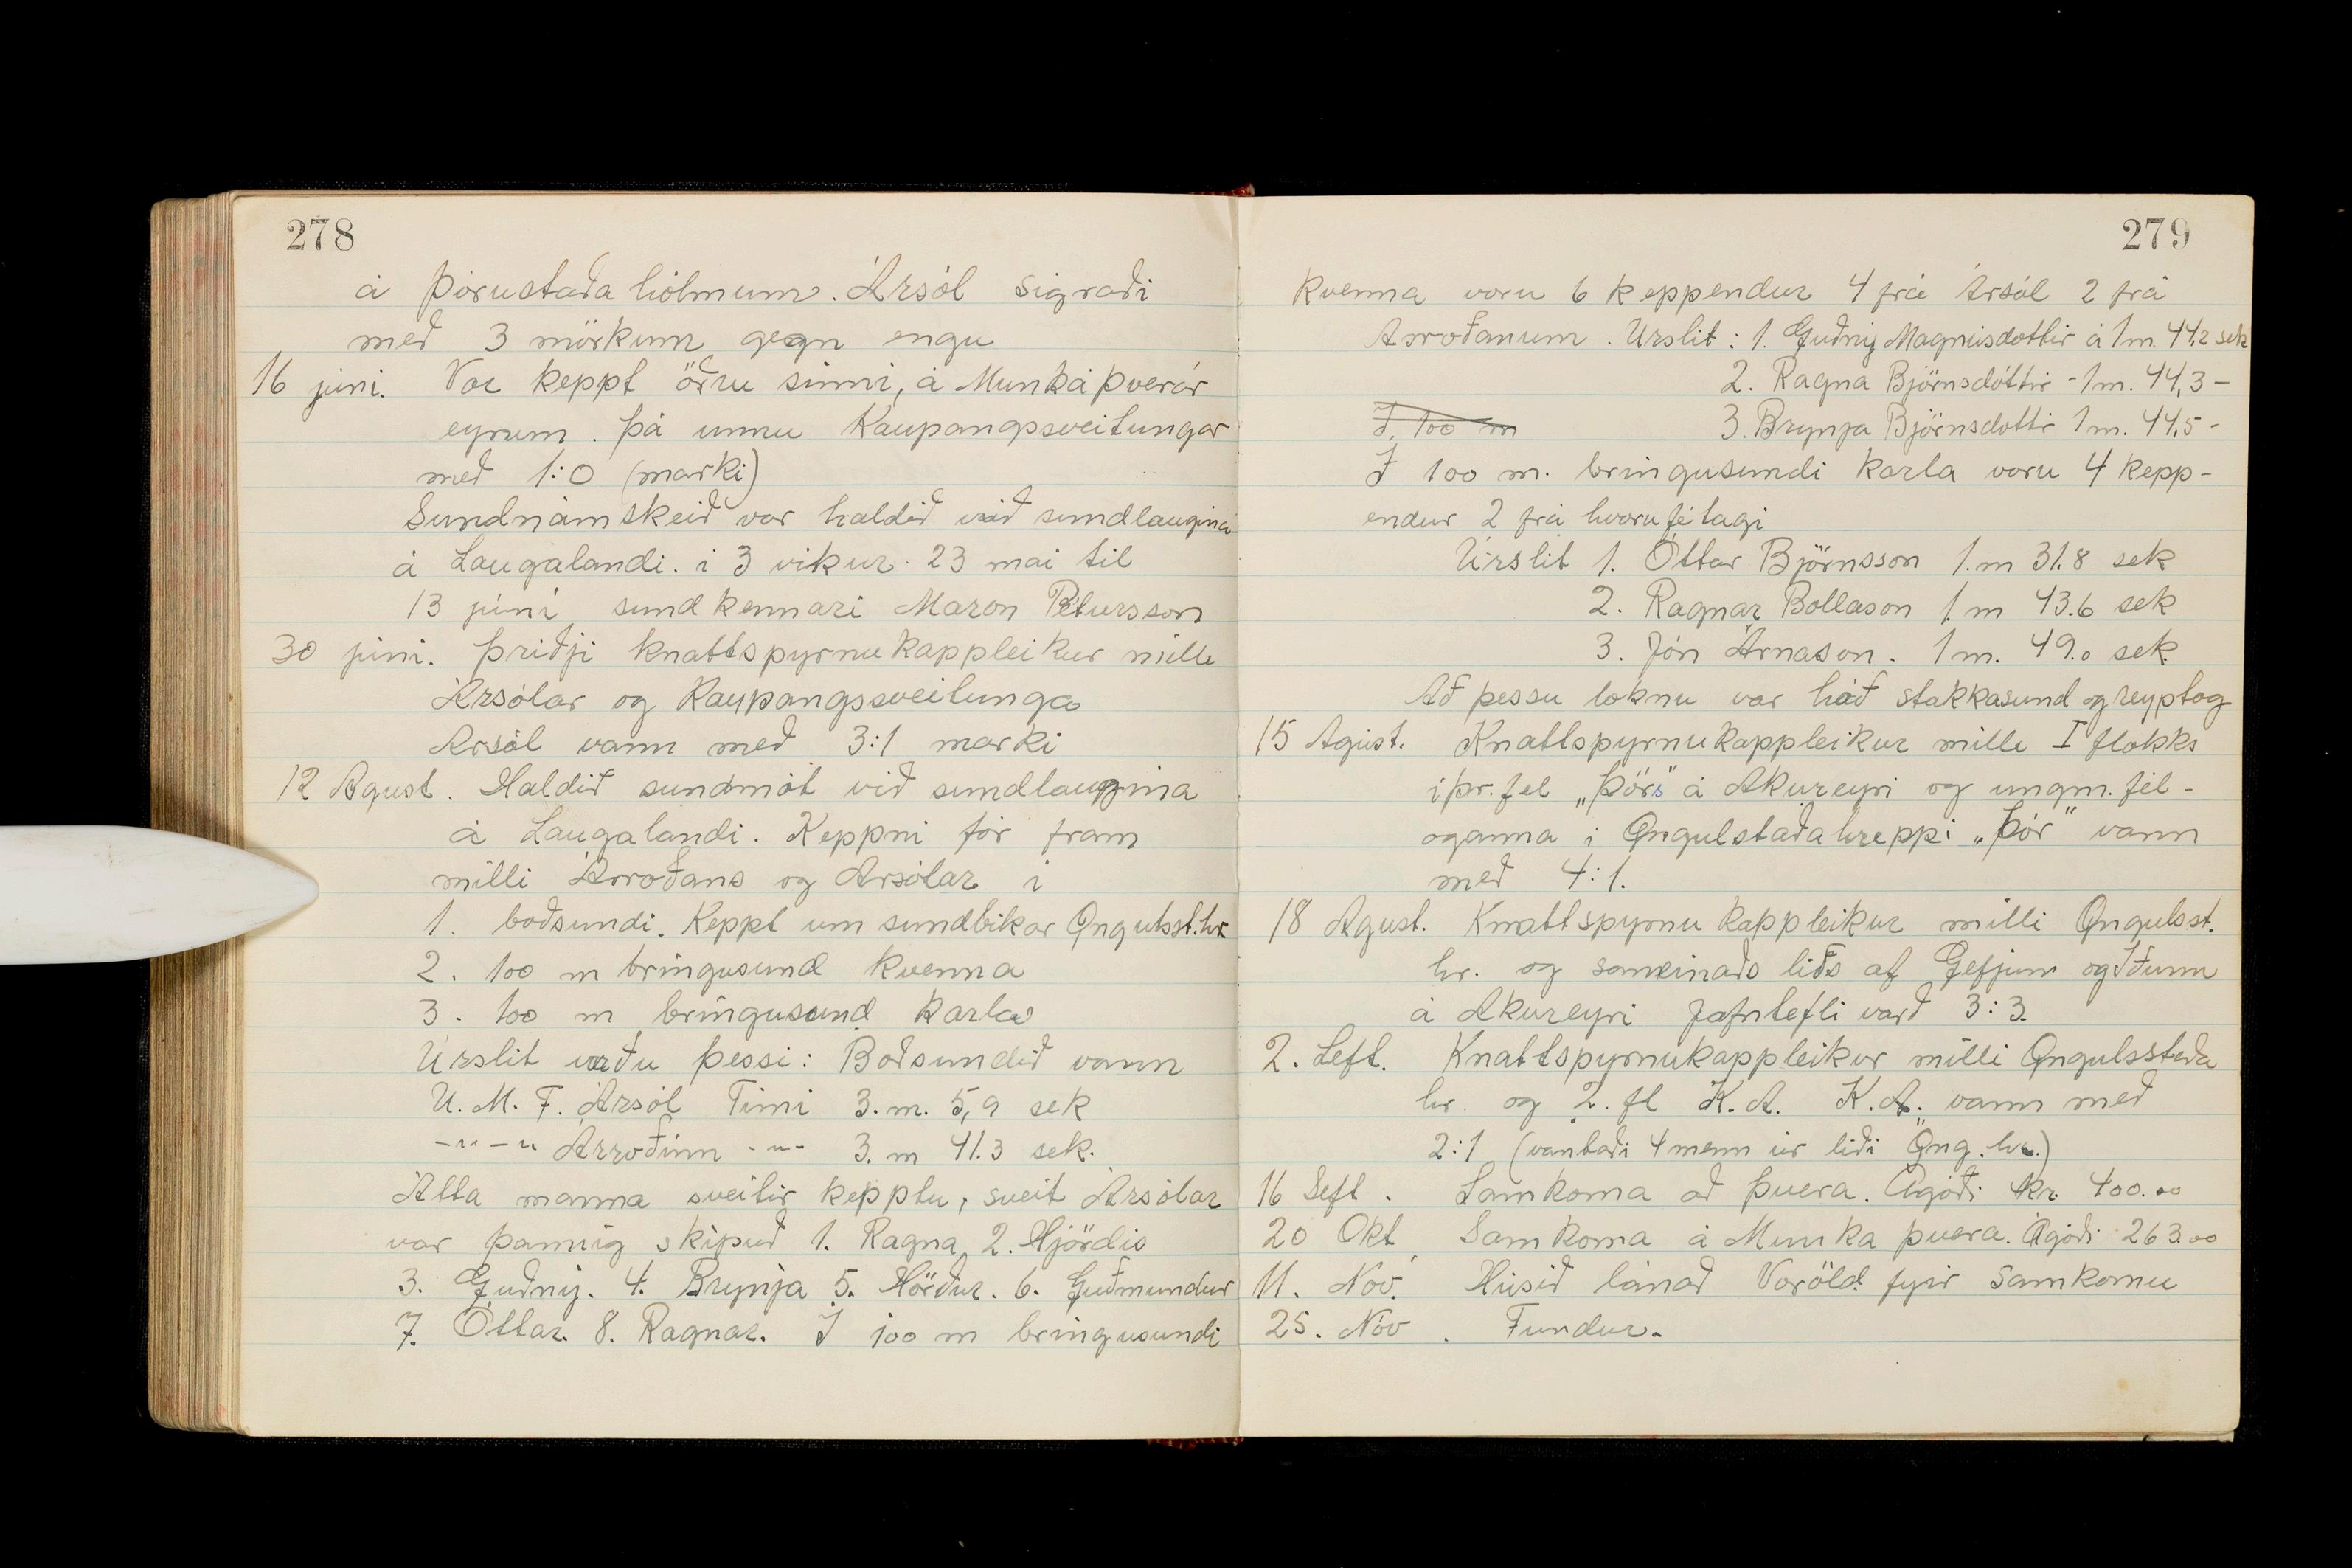 278
á Þórustaða hólmum. Ársól sigraði
með 3 mörkum gegn engu
16 júní. Var keppt öðru sinni, á Munkaþverár
eyrum. Þá unnu Kaupangssveitungar
með 1:0 (marki)
Sundnámskeið var haldið við sundlaugina
á Laugalandi. í 3 vikur. 23 maí til
13 júní sundkennari Maron Pétursson
30 júní. Þriðji knattspyrnukappleikur milli
Ársólar og Kaupangssveitunga
Ársól vann með 3:1 marki
12 Agust. Haldið sundmót við sundlaugina
á Laugalandi. Keppni fór fram
milli Árroðans og Ársólar í
1. boðsundi. Keppt um sundbikar Öngulsst.hr
2. 100 m bringusund kvenna
3. 100 m bringusund karla
Úrslit urðu þessi: Boðsundið vann
U.M.F. Ársól Tími 3.m. 5,9 sek
-"-" Árroðinn -"- 3.m 41.3 sek.
Átta manna sveitir kepptu, sveit Ársólar
var þannig skipuð 1. Ragna, 2. Hjördís
3. Guðný. 4. Brynja 5. Hörður. 6. Guðmundur
7. Óttar. 8. Ragnar. Í 100 m bringusundi
279
kvenna voru 6 keppendur 4 frá Ársól 2 frá
Árroðanum. Úrslit: 1. Guðný Magnúsdóttir á 1m. 44,2 sek
2. Ragna Björnsdóttir - 1m. 44,3 -
Í 100 m 3. Brynja Björnsdottir 1m. 44,5 -
Í 100 m. bringusundi karla voru 4 kepp-
endur 2 frá hvoru félagi
Úrslit 1. Óttar Björnsson 1.m 31.8 sek
2. Ragnar Bollason 1.m 43.6 sek
3. Jón Árnason. 1m. 49.0 sek.
Að þessu loknu var háð stakkasund og reyptog
15 Agúst. Knattspyrnukappleikur milli I flokks
íþr.fel „Þórs" á Akureyri og ungm. fél-
aganna í Öngulstaðahreppi „Þór" vann
með 4:1.
18 Agust. Knattspyrnu kappleikur milli Öngulsst.
hr. og sameinaðs liðs af Gefjun og Iðunn
á Akureyri Jafntefli varð 3:3.
2. Sept. Knattspyrnukappleikur milli Öngulsstaða
hr. og 2. fl K.A. K.A. vann með
2:1 (vantaði 4 menn úr liði Öng. hr.)
16 Sept. Samkoma að Þverá. Ágóði kr. 400.00
20 Okt Samkoma á Munka þverá. Ágóði 263.00
11. Nóv. Húsið lánað Voröld fyrir samkomu
25. Nóv. Fundur.